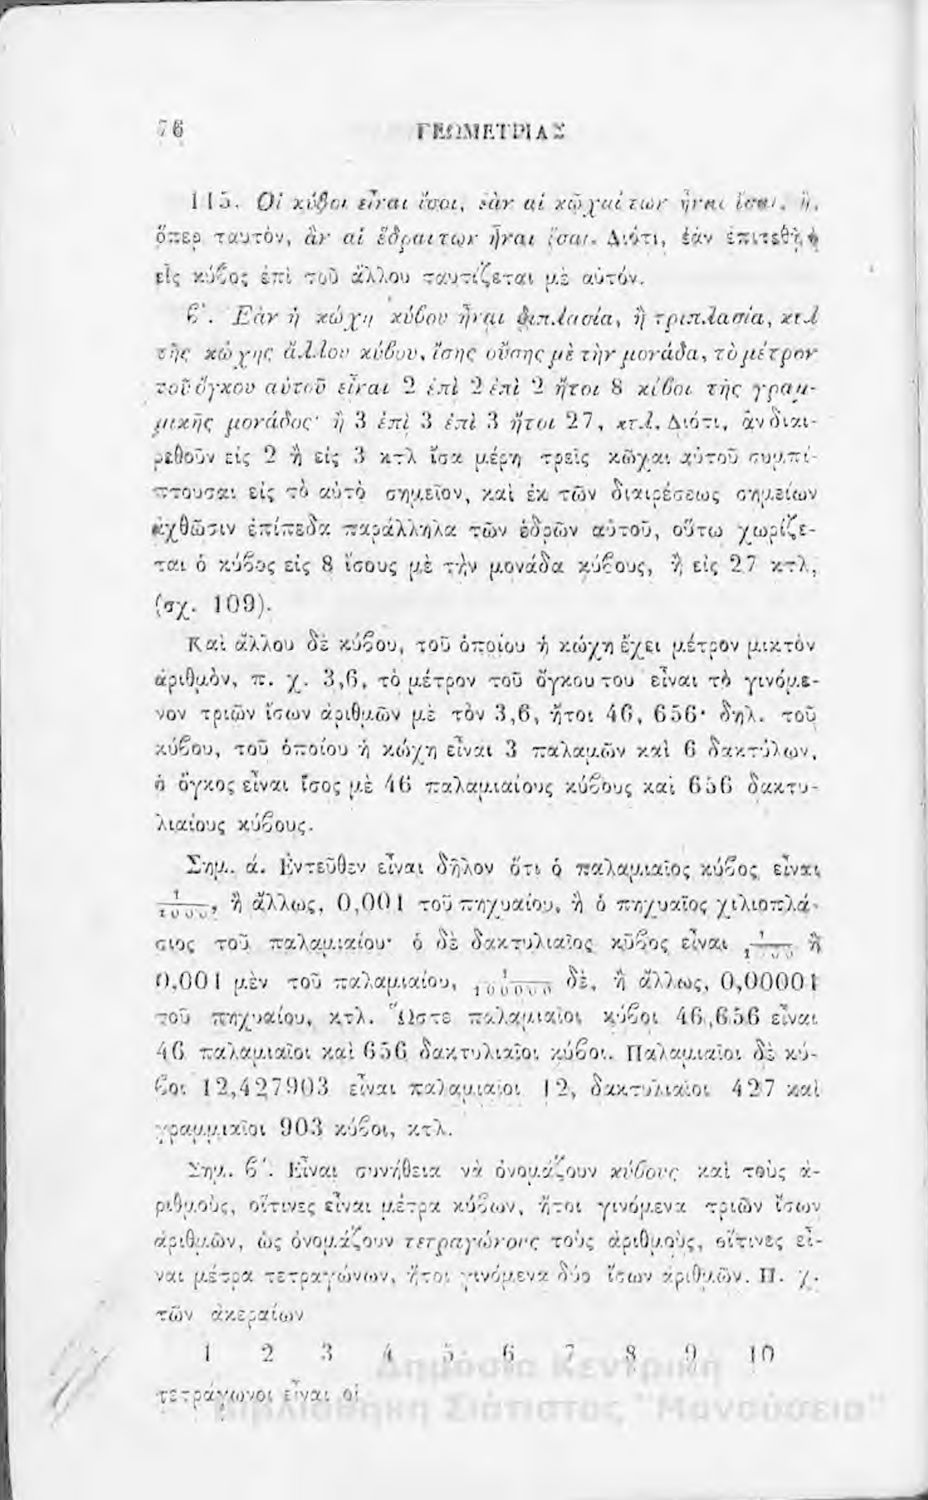 76 ΓΕΩΜΕΤΡΙΑΣ
115. Οἱ κύβοι εἶναι ἴσοι, ἐὰν αἱ κῶχαί των ἦναι ἴσαι, ἢ,
ὅπερ ταυτόν, ἂν αἱ ἕδραι των ἦναι ἴσαι. Διότι, ἐὰν ἐπιτεθῇ ὁ
εἷς κύβος ἐπὶ τοῦ ἄλλου ταυτίζεται μὲ αὐτόν.
ϐ΄. Ἐὰν ἡ κώχη κύβου ἦναι διπλασία, ἢ τριπλασία, κτλ
τῆς κώχης ἄλλου κύβου, ἴσης οὔσης μὲ τὴν μονάδα, τὸ μέτρον
τοῦ ὄγκου αὐτοῦ εἶναι 2 ἐπὶ 2 ἐπὶ 2 ἤτοι 8 κύβοι τῆς γραμ-
μικῆς μονάδος· ἢ 3 ἐπὶ 3 ἐπὶ 3 ἤτοι 27, κτλ. Διότι, ἂν διαι-
ρεθοῦν εἰς 2 ἢ εἰς 3 κτλ ἴσα μέρη τρεῖς κῶχαι αὐτοῦ συμπί-
πτουσαι εἰς τὸ αὐτὸ σημεῖον, καὶ ἐκ τῶν διαιρέσεως σημείων
ἀχθῶσιν ἐπίπεδα παράλληλα τῶν ἑδρῶν αὐτοῦ, οὕτω χωρίζε-
ται ὁ κύβος εἰς 8 ἴσους μὲ τὴν μονάδα κύβους, ἢ εἰς 27 κτλ,
(σχ. 109).
Καὶ ἄλλου δὲ κύβου, τοῦ ὁποίου ἡ κώχη ἔχει μέτρον μικτὸν
ἀριθμὸν, π. χ. 3,6, τὸ μέτρον τοῦ ὄγκου του εἶναι τὸ γινόμε-
νον τριῶν ἴσων ἀριθμῶν μὲ τὸν 3,6, ἤτοι 46, 656· δηλ. τοῦ
κύβου, τοῦ ὁποίου ἡ κώχη εἶναι 3 παλαμῶν καὶ 6 δακτύλων,
ὁ ὄγκος εἶναι ἴσος μὲ 46 παλαμιαίους κύβους καὶ 656 δακτυ-
λιαίους κύβους.
Σημ. ά. Ἐντεῦθεν εἶναι δῆλον ὅτι ὁ παλαμιαῖος κύβος εἶναι
1/1000, ἢ ἄλλως, 0,001 τοῦ πηχυαίου, ἢ ὁ πηχυαῖος χιλιοπλά-
σιος τοῦ παλαμιαίου· ὁ δὲ δακτυλιαῖος κῦβος εἶναι 1/1000 ἢ
0,001 μὲν τοῦ παλαμιαίου, 1/100000 δὲ, ἢ ἄλλως, 0,00001
τοῦ πηχυαίου, κτλ. Ὥστε παλαμιαῖοι κύβοι 46,656 εἶναι
46 παλαμιαῖοι καὶ 656 δακτυλιαῖοι κύβοι. Παλαμιαῖοι δὲ κύ-
ϐοι 12,427903 εἶναι παλαμιαῖοι 12, δακτυλιαῖοι 427 καὶ
γραμμιαῖοι 903 κύβοι, κτλ.
Σημ. ϐ΄. Εἶναι συνήθεια νὰ ὀνομάζουν κύβους καὶ τοὺς ἀ-
ριθμοὺς, οἵτινες εἶναι μέτρα κύβων, ἤτοι γινόμενα τριῶν ἴσων
ἀριθμῶν, ὡς ὀνομάζουν τετραγώνους τοὺς ἀριθμοὺς, οἵτινες εἶ-
ναι μέτρα τετραγώνων, ἤτοι γινόμενα δύο ἴσων ἀριθμῶν. Π. χ.
τῶν ἀκεραίων
1 2 3 4 5 6 7 8 9 10
τετράγωνοι εἶναι οἱ
Δημόσια Κεντρική
Βιβλιοθήκη Σιάτιστας "Μανούσεια"